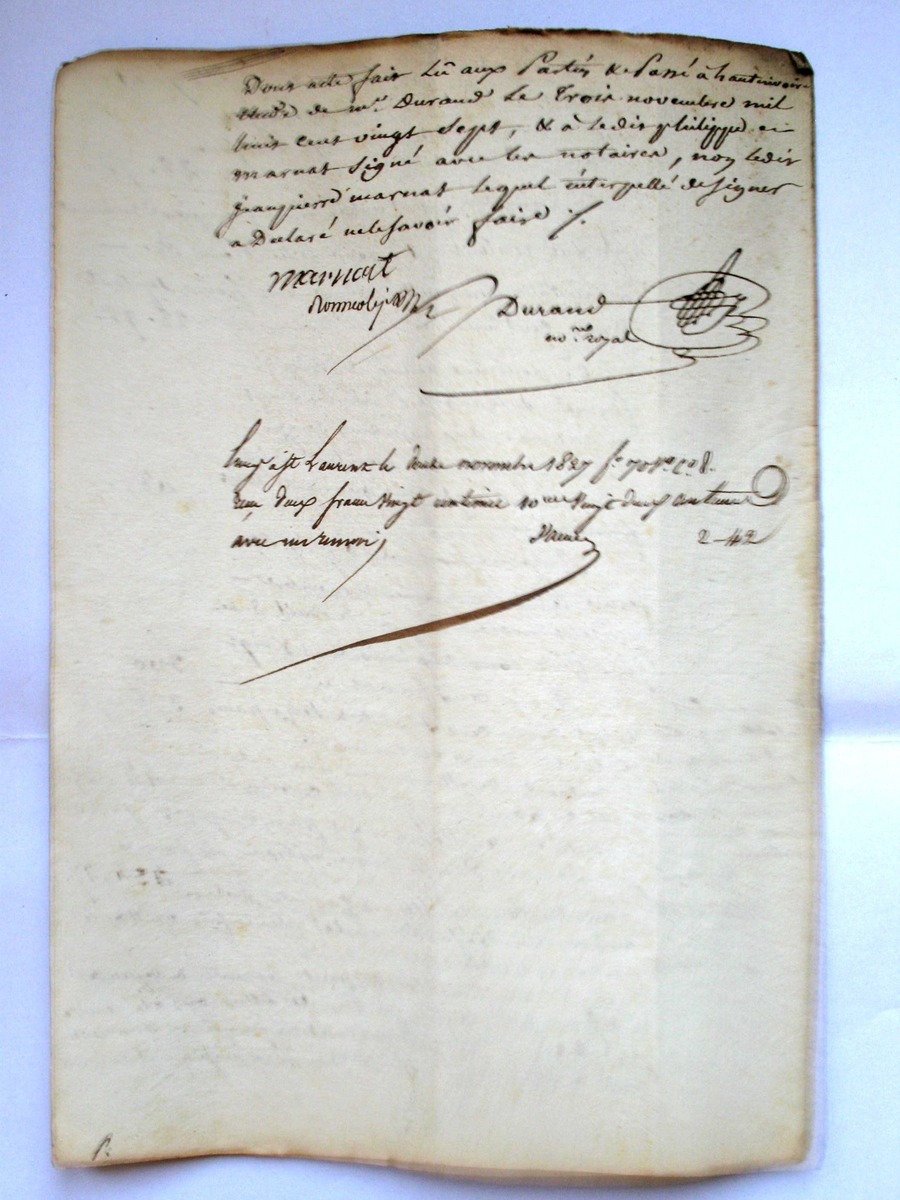 Dont acte fait Lû aux Parties & Passé à hauterivoire
étude de Mr. Durand Le Trois novembre mil
huit cent vingt sept, & a ledit philippe
marnat signé avec les notaires, non ledit
jeanpierre marnat lequel interpellé de signer
a Declaré nele savoir faire /.
marnat
Durand
nore royal
Enreg à St Laurent le douze novembre 1827 fo 70 vo Co 8.
reçu deux francs vingt centimes 10me vingt deux centimes
2-42